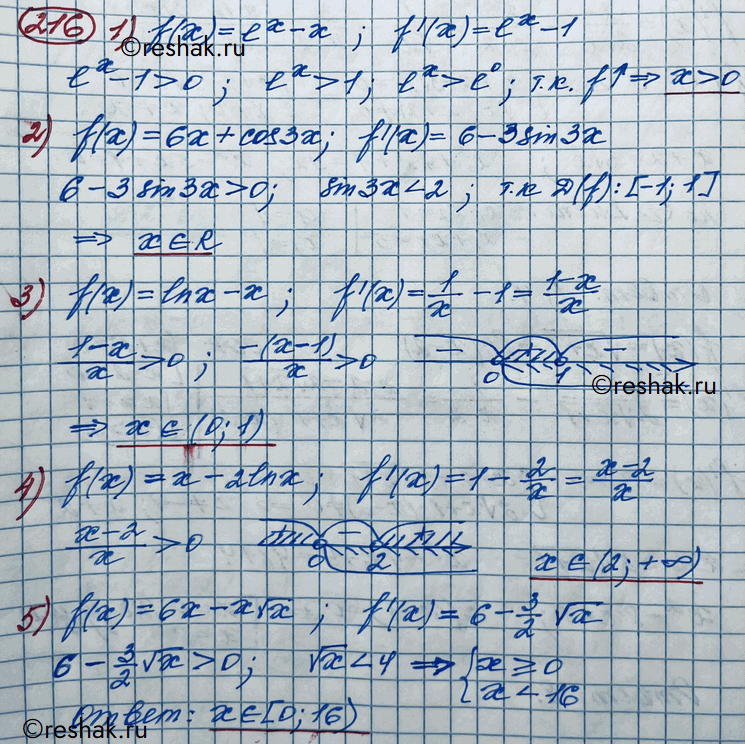 216 1) f(x)=e^x-x ; f'(x)=e^x-1
©reshak.ru
e^x-1>0 ; e^x>1; e^x>e^0 ; т.к. f↑ ⇒ x>0
2) f(x)=6x+cos3x; f'(x)=6-3sin3x
6-3sin3x>0; sin3x<2 ; т.к D(f):[-1;1]
⇒ x∈R
3) f(x)=lnx-x ; f'(x)=1/x-1=(1-x)/x
(1-x)/x>0 ; (-(x-1))/x>0 - + - 0 1
©reshak.ru
⇒ x∈(0;1)
4) f(x)=x-2lnx; f'(x)=1-2/x=(x-2)/x
(x-2)/x>0 + - + 0 2 x∈(2;+∞)
5) f(x)=6x-x√x ; f'(x)=6-3/2√x
6-3/2√x>0; √x<4 ⇒ {x≥0
x<16
Ответ: x∈[0;16)
©reshak.ru